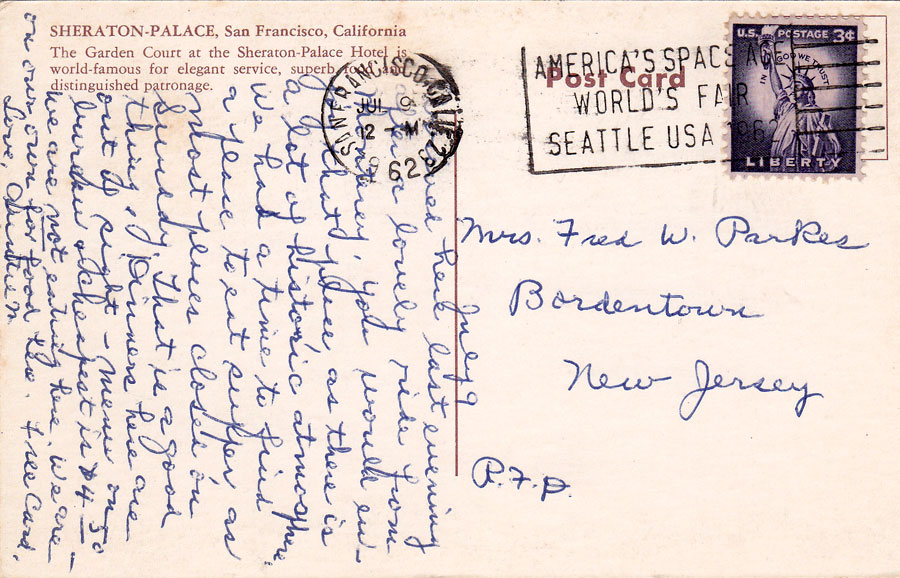 SHERATON-PALACE, San Francisco, California
The Garden Court at the Sheraton-Palace Hotel is
world-famous for elegant service, superb food and
distinguished patronage.
Post Card
SAN FRANCISCO CALIF
JUL 9
12 - M
1962
AMERICA'S SPACE AGE
WORLD'S FAIR
SEATTLE USA 1962
U.S. POSTAGE 3¢
IN GOD WE TRUST
LIBERTY
Mrs. Fred W. Parkes
Bordentown
New Jersey
R.F.D.
July 9
here last evening
a lovely ride from
Monterey, you would en-
that place as there is
a lot of historic atmosphere.
We had a time to find
a place to eat supper as
most places closed on
Sunday. That is a good
thing. Dinners here are
out of sight - menu on
bureau & cheapest is $4.50 -
we are not eating here. We are
on our own for food too. Free Card.
Love,